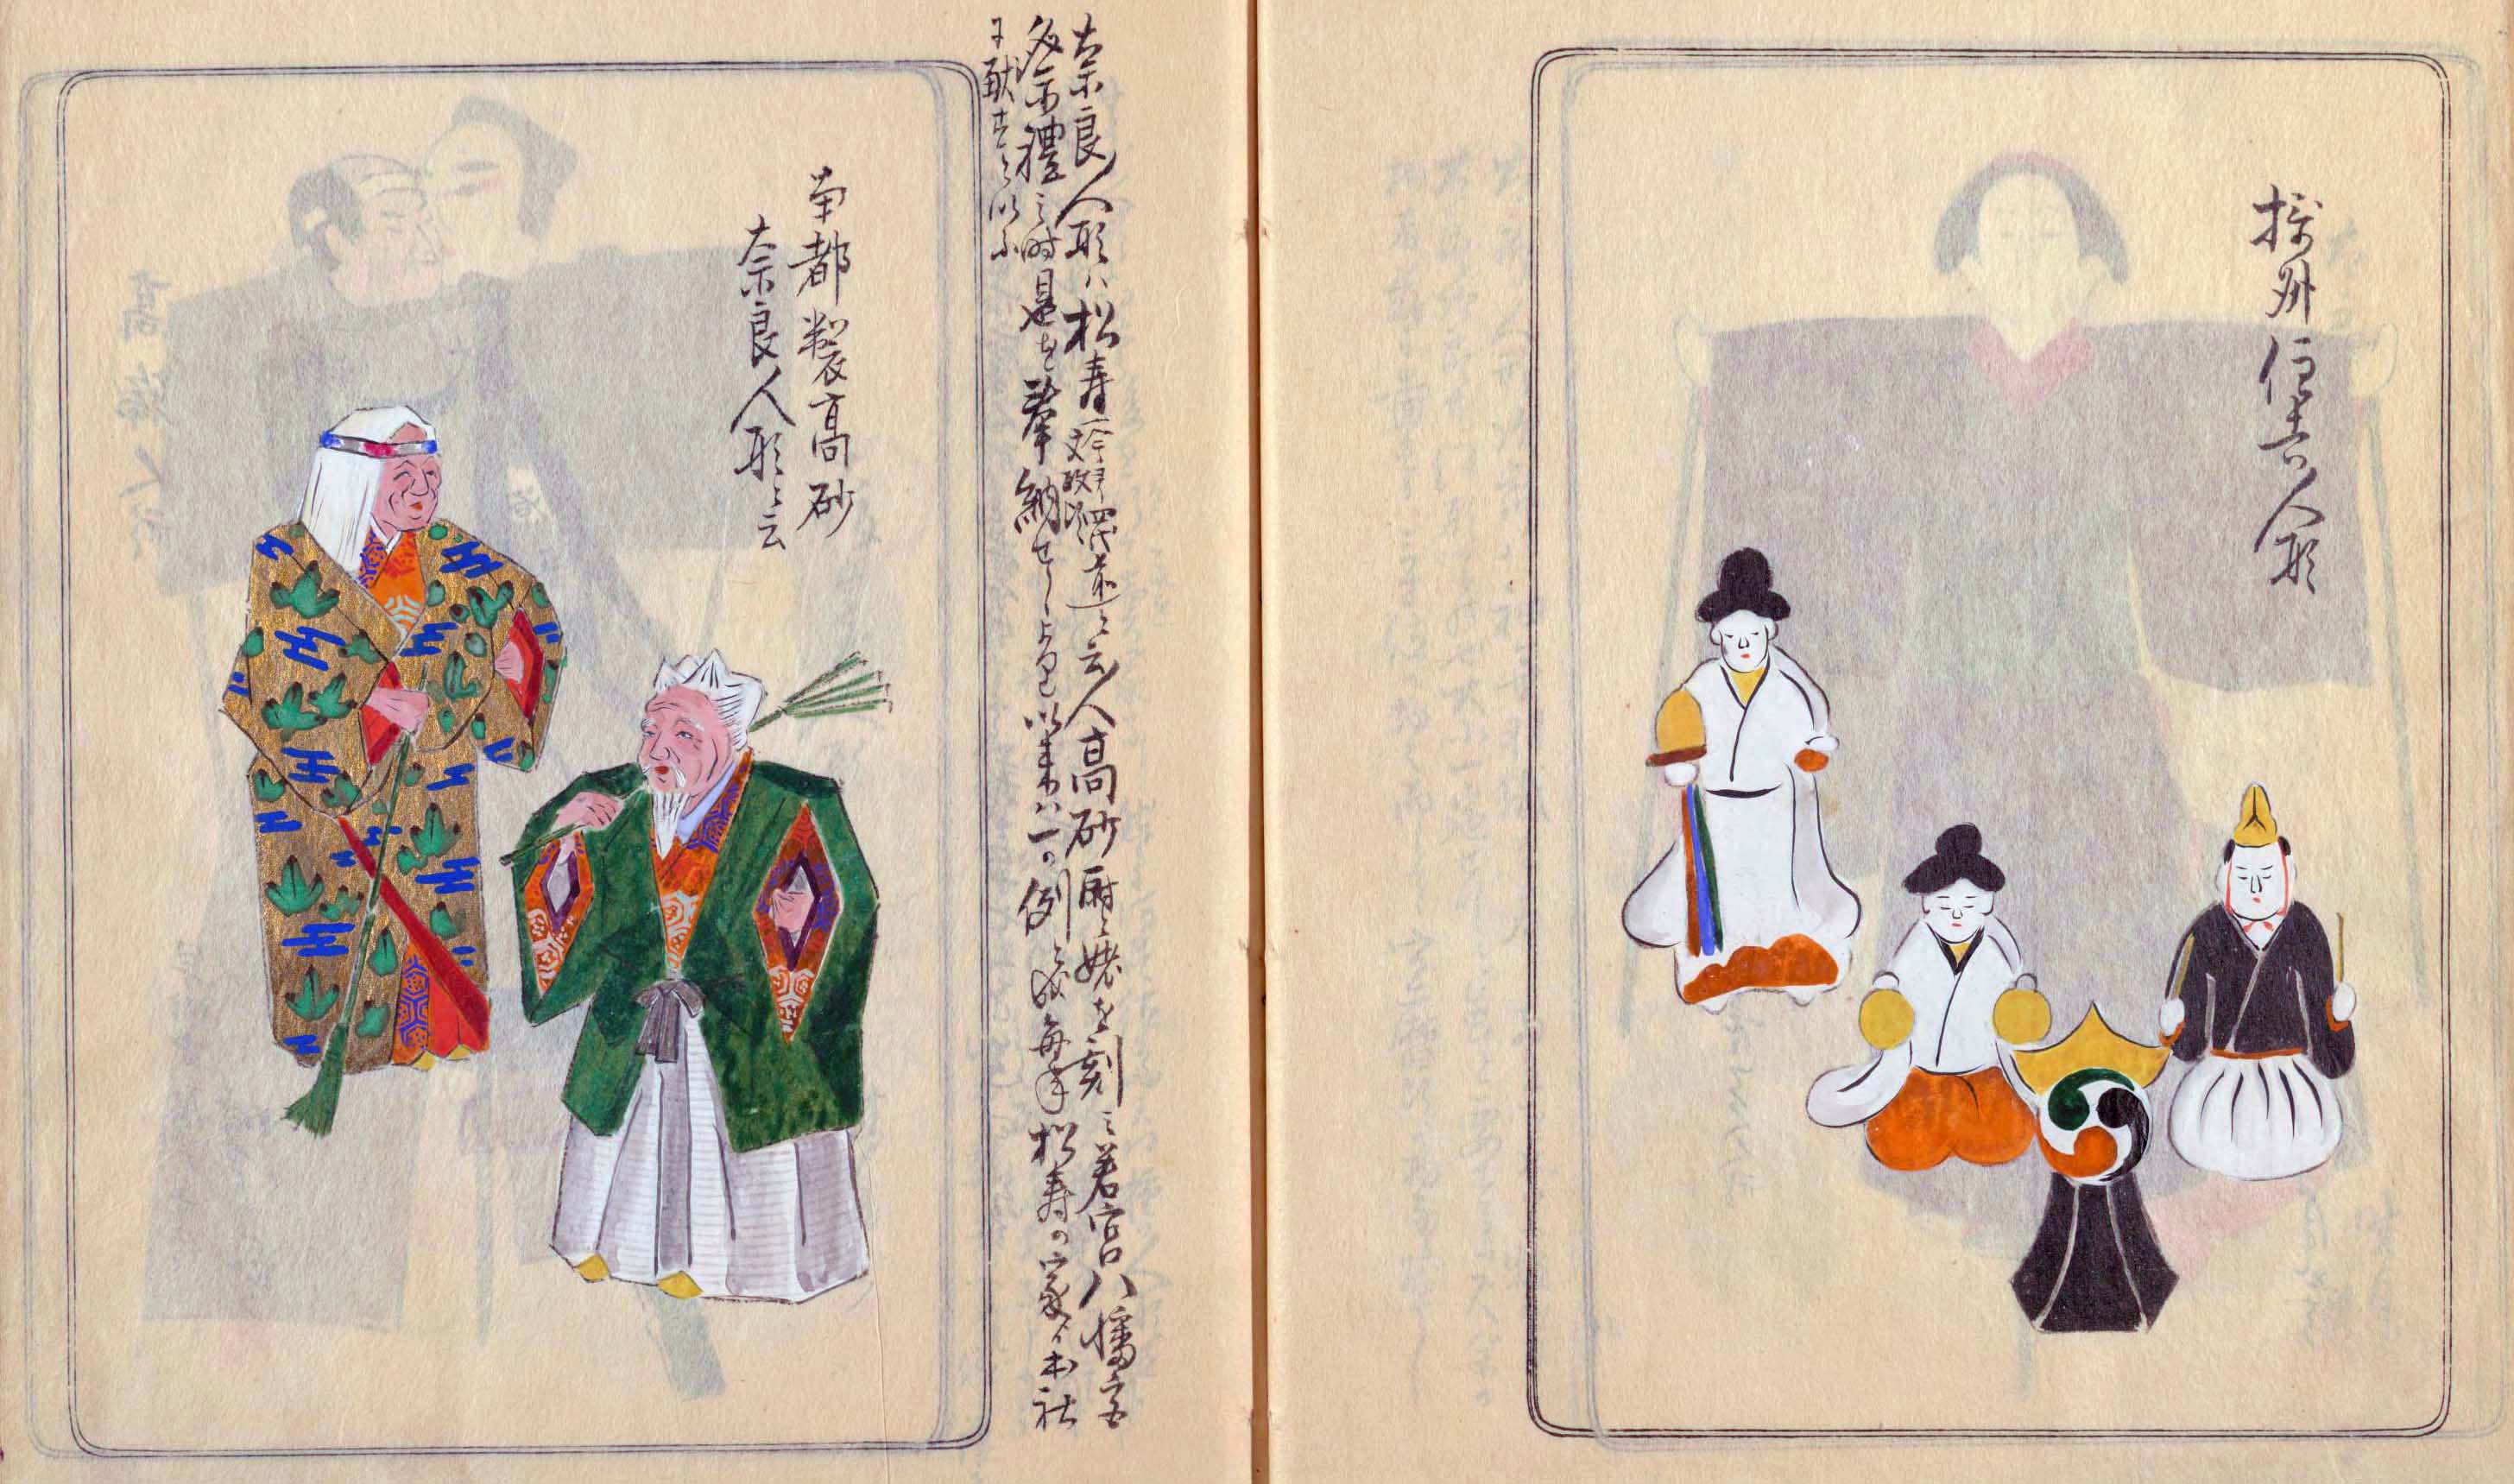 摂州住吉人形
奈良人形ハ松寿 今ヨリ四代前 と云人高砂尉と姥を刻ミ若宮八幡宮
祭礼之時是を奉納せしより以来ハ一の例と成毎年松寿の家より本社
に献すと以ふ
南都製高砂
奈良人形と云